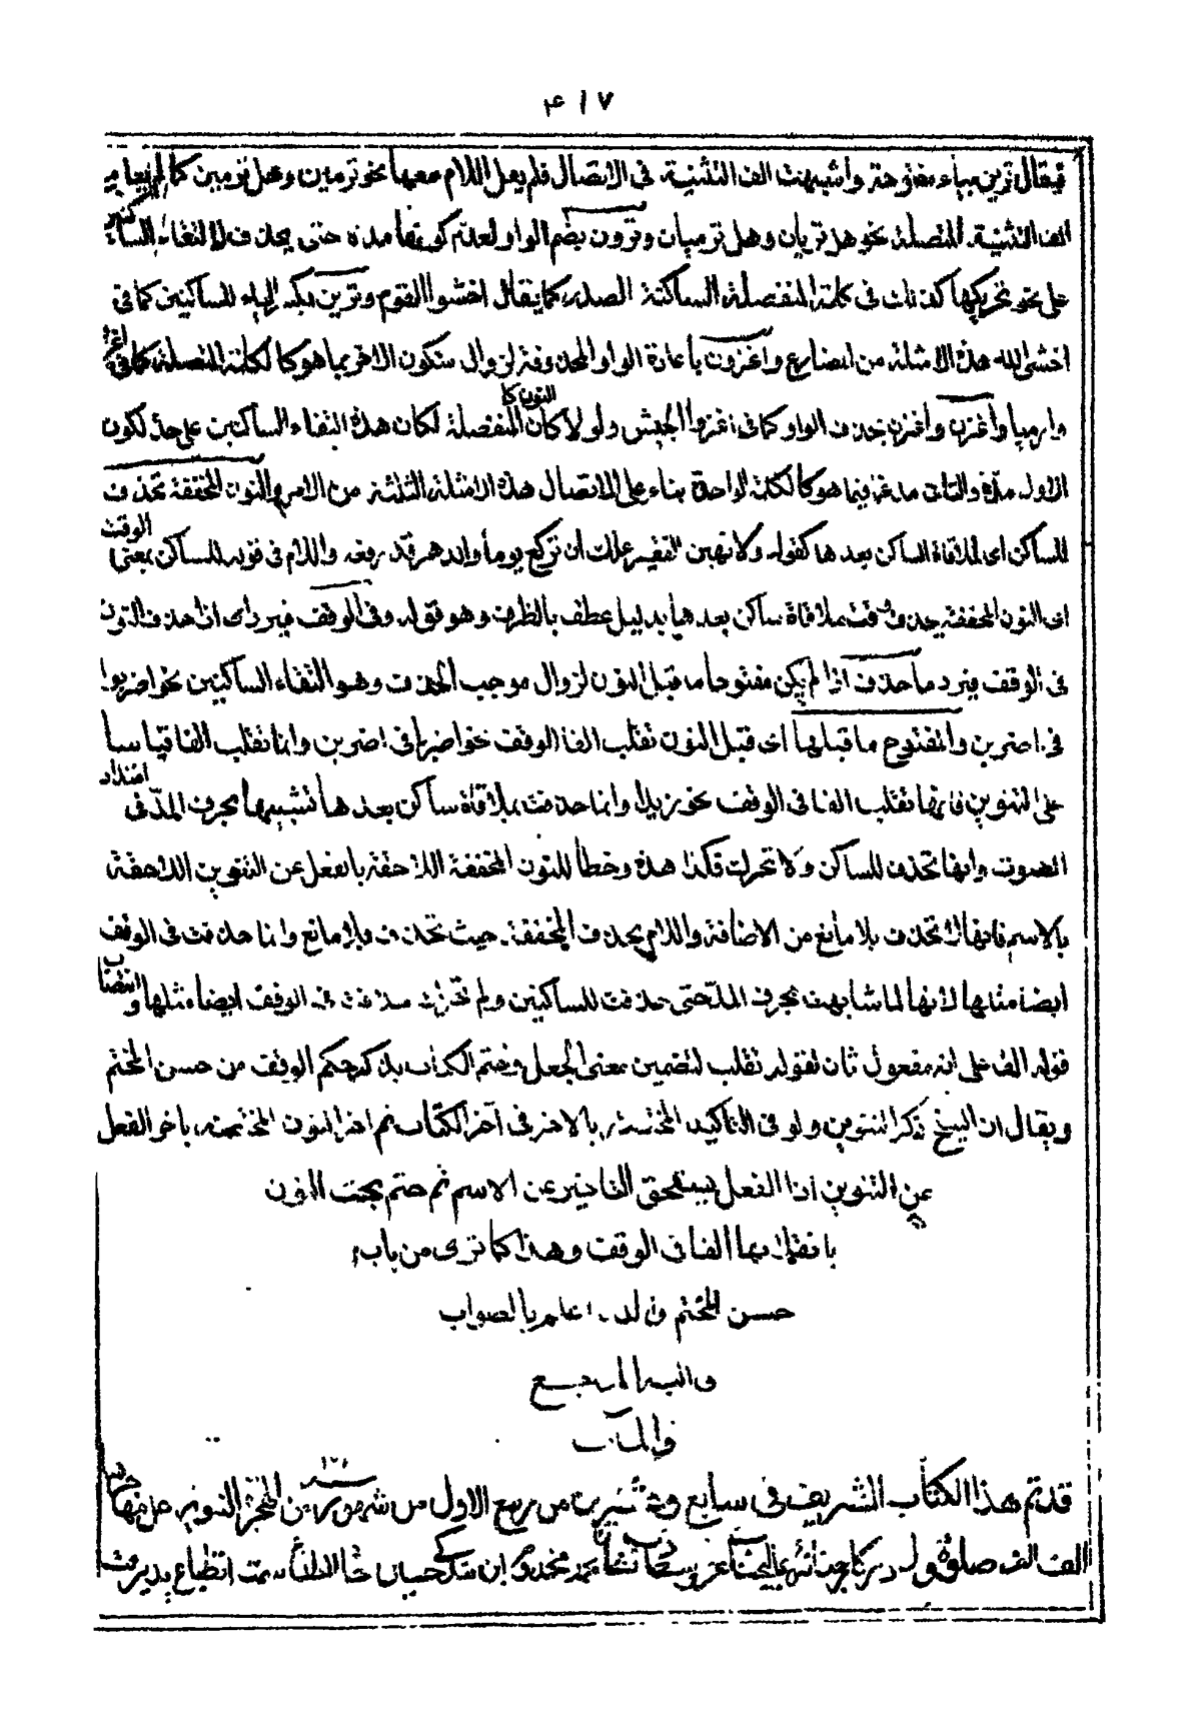 ۴۱۷
فيقال ترين بياء مفتوحة واشبهت الف التثنية فى الاتصال فلم يعل اللام معها نحو ترمين وهل ترمين كما لم يعل مع
الف التثنية المتصلة نحو هل تريان وهل ترميان وترون بضم الواو لعدم كونها مدة حتى يحذف لالتقاء الساكنين
على نحو تحريكها كذلك فى كلمة المنفصلة الساكنة الصدر كما يقال اخشوا القوم وترين بكسر الياء للساكنين كما فى
اخشى الله هذه الامثلة من المضارع واغزون باعادة الواو المحذوفة لزوال سكون الاخر بما هو كالكلمة المتصلة كما فى اغزوا
وارميا واغزن واغزن بحذف الواو كما فى اغزوا الجيش ولولا كان النون كالمنفصلة لكان هذه التقاء الساكنين على حده لكون
الاول مدة والثانى مدغما فيما هو كالكلمة الواحدة بناء على الاتصال هذه الامثلة الثلثة من الامر والنون المخففة تحذف
للساكن اى لملاقاة الساكن بعدها كقوله ولا تهين الفقير علك ان تركع يوما والدهر قد رفعه واللام فى قوله للساكن بمعنى الوقت
اى النون المخففة يحذف وقت ملاقاة ساكن بعدها بدليل عطف بالظرف وهو قوله وفى الوقف فيرد اى اذا حذف النون
فى الوقف فيرد ما حذف اذا لم يكن مفتوحا ما قبل النون لزوال موجب الحذف وهو التقاء الساكنين نحو اضربوا
فى اضربن والمفتوح ما قبلها اى قبل النون تقلب الفا الوقف نحو اضربا فى اضربن وانما تقلب الفا قياسا
على التنوين فانها تقلب الفا فى الوقف نحو زيدا وانما حذفت بملاقاة ساكن بعدها تشبيها بحرف المد فى امتداد
الصوت وانها تحذف للساكن ولا تحرك فكذا هذه وخطأ للنون المخففة اللاحقة بالفعل عن التنوين اللاحقة
بالاسم فانها لا تحذف بلا مانع من الاضافة واللام بحذف المخففة حيث تحذف بلا مانع وانما حذفت فى الوقف
ايضا مثلها لانها لما شابهت بحرف المد حتى حذفت للساكنين ولم تحرك حذفت فى الوقف ايضا مثلها وانتصاب
قوله الف على انه مفعول ثان لقوله تقلب لتضمين معنى الجعل وختم الكتاب بذكر حكم الوقف من حسن المختم
ويقال ان الشيخ ذكر التنوين ولو فى التاكيد بالاخر فى آخر الكتاب ثم اخر النون باخر الفعل
عن التنوين اذا الفعل يستحق التاخير عن الاسم ثم ختم بحث النون
بانقلابها الفا فى الوقف وهذا كما ترى من باب
حسن المختم والله اعلم بالصواب
واليه المرجع
والمآب
قد تم هذا الكتاب الشريف فى سابع وعشرين من ربيع الاول من شهور من الهجرة النبوية على صاحبها
الف الف صلوة